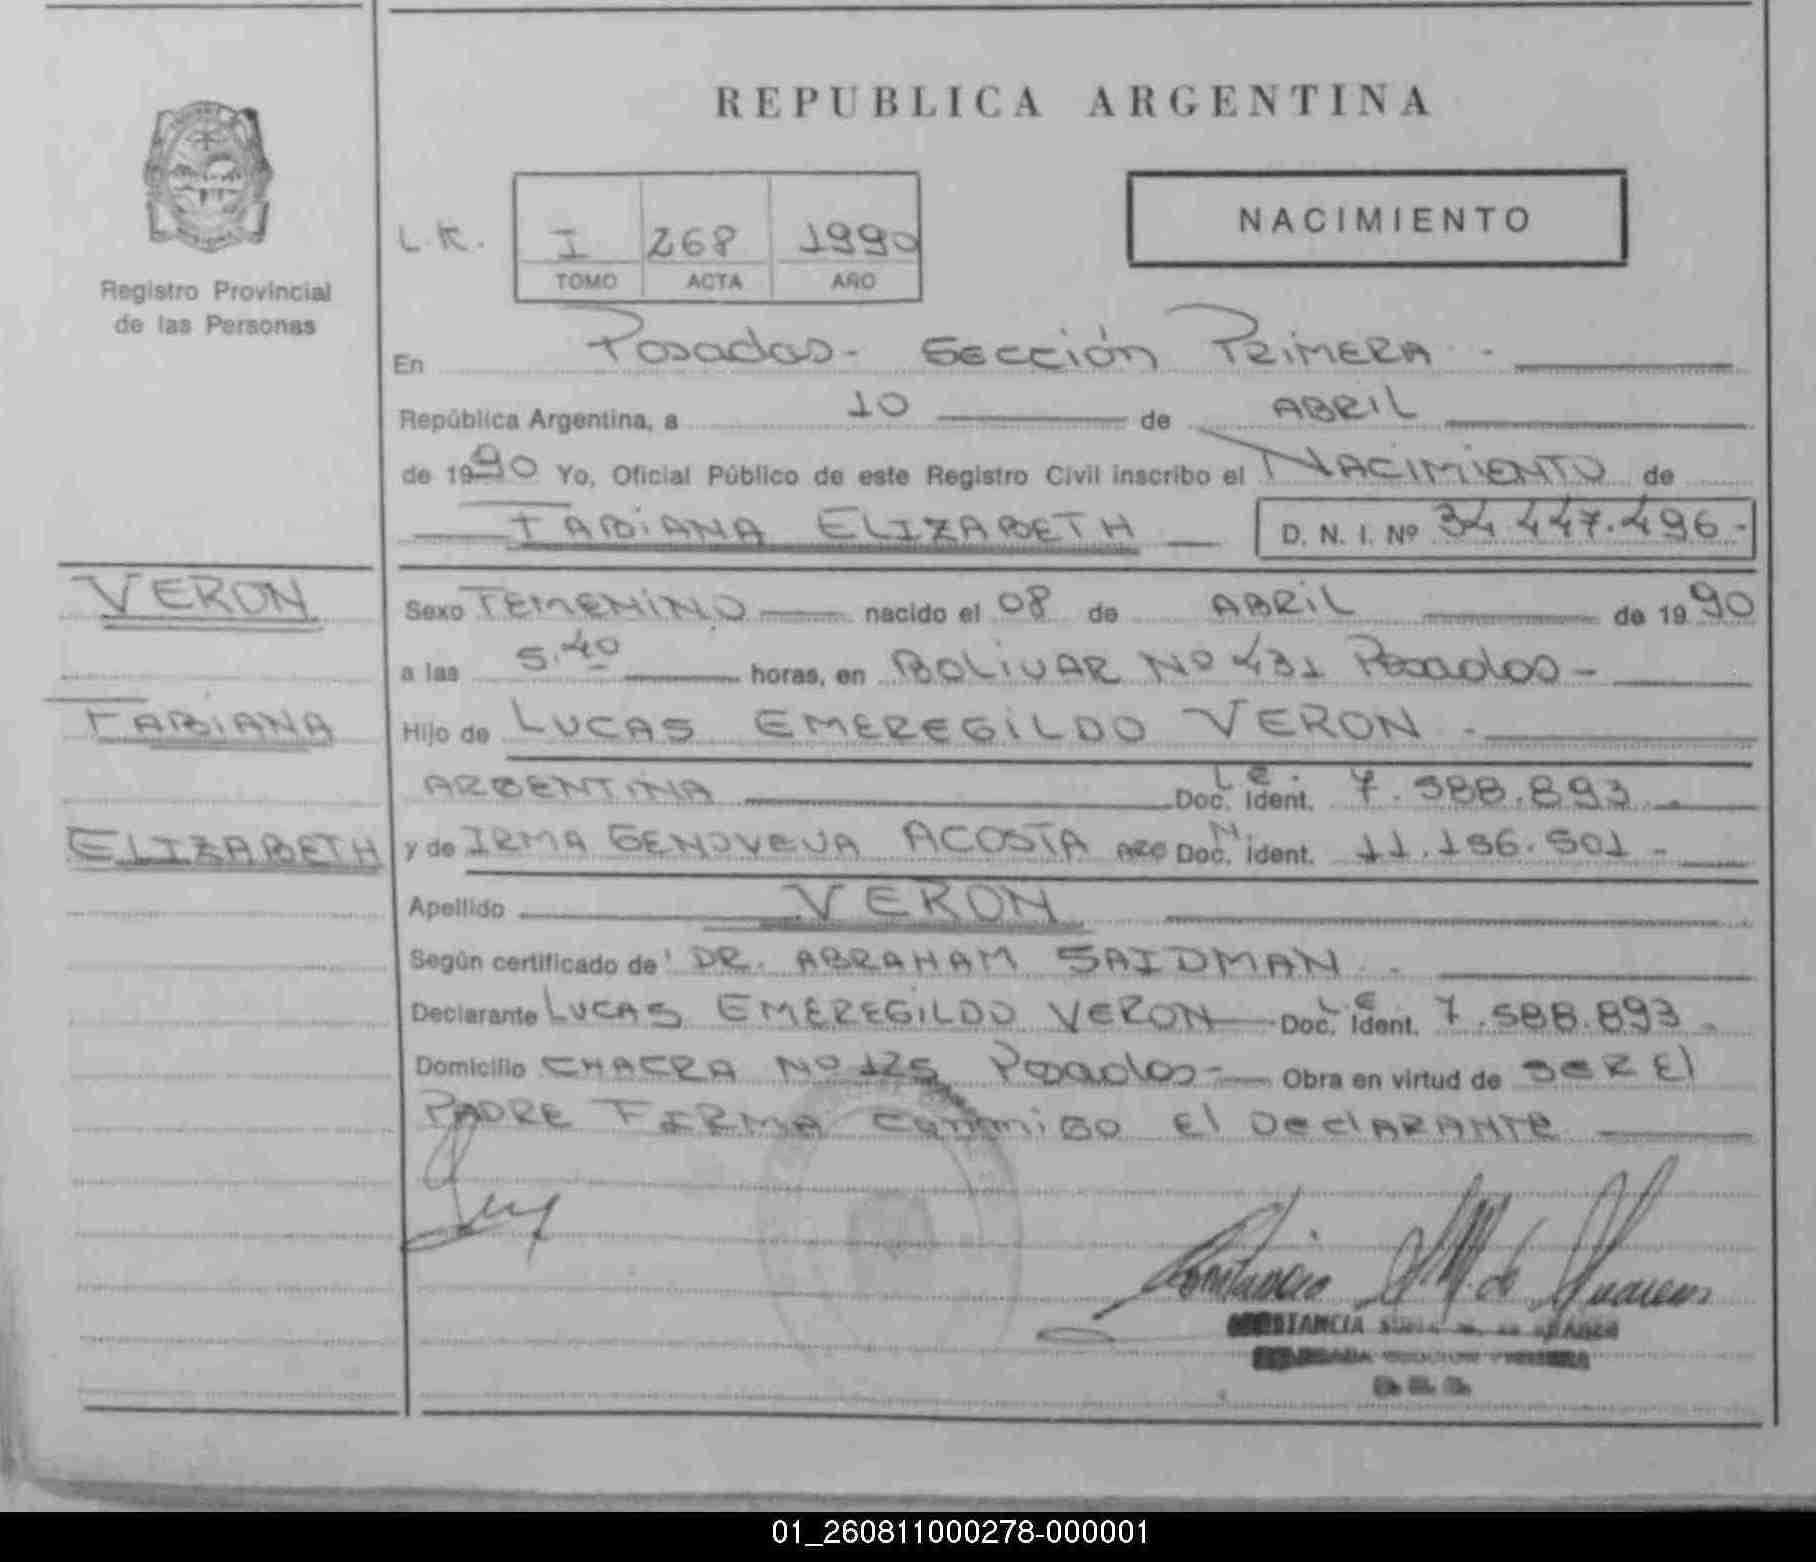 REPUBLICA ARGENTINA
NACIMIENTO
L.K. I 268 1990
TOMO ACTA AÑO
Registro Provincial
de las Personas
En Posadas - Sección Primera -
República Argentina, a 10 de ABRIL
de 1990 Yo, Oficial Público de este Registro Civil inscribo el NACIMIENTO de
FABIANA ELIZABETH D. N. I. Nº 34.447.496.-
VERON
FABIANA
ELIZABETH
Sexo FEMENINO nacido el 08 de ABRIL de 1990
a las 5.40 horas, en BOLIVAR Nº 431 Posadas -
Hijo de LUCAS EMEREGILDO VERON -
ARGENTINA Doc. Ident. L.E. 7.588.893.
y de IRMA GENOVEVA ACOSTA ARG Doc. Ident. N. 11.156.501 -
Apellido VERON
Según certificado de DR. ABRAHAM SAIDMAN.
Declarante LUCAS EMEREGILDO VERON Doc. Ident. L.E. 7.588.893.
Domicilio CHACRA Nº 125 Posados - Obra en virtud de SER El
PADRE FIRMA conmigo El DeclARANte
01_260811000278-000001